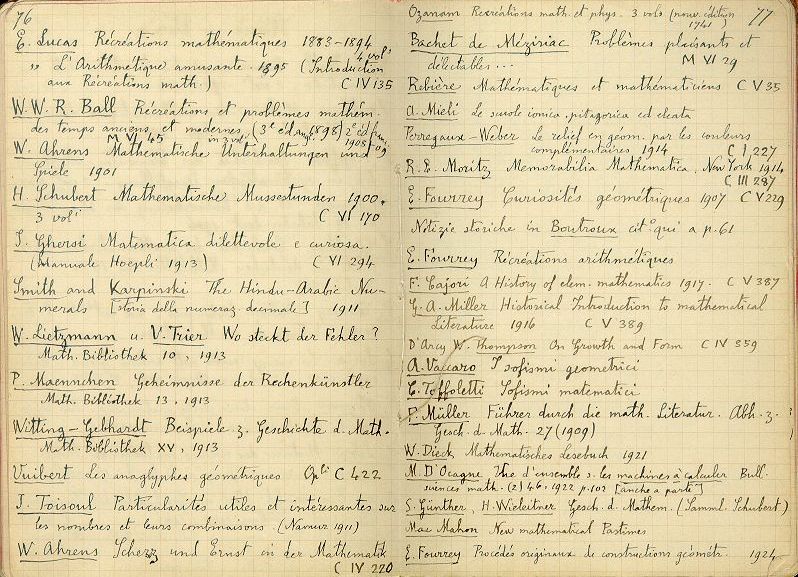 76
E. Lucas Récréations mathématiques 1883-1894
4 vol.i
" L'Arithmétique amusante 1895 (Introduction
aux Récréations math.) C IV 135
W. W. R. Ball Récréations et problèmes mathém.
des temps anciens et modernes (3e éd. angl. 1898) 2e éd. franç.
M VI 45 in 3 vol.i 1908-09
W. Ahrens Mathematische Unterhaltungen und
Spiele 1901
H. Schubert Mathematische Mussestunden 1900.
3 vol.i C VI 170
I. Ghersi Matematica dilettevole e curiosa.
(Manuale Hoepli 1913) C VI 294
Smith and Karpinski The Hindu-Arabic Nu-
merals [storia della numeraz. decimale] 1911
W. Lietzmann u. V. Trier Wo steckt der Fehler?
Math. Bibliothek 10, 1913
P. Maennchen Geheimnisse der Rechenkünstler
Math. Bibliothek 13, 1913
Witting-Gebhardt Beispiele z. Geschichte d. Math.
Math. Bibliothek XV, 1913
Vuibert Les anaglyphes géometriques Op.li C 422
J. Toisoul Particularités utiles et intéressantes sur
les nombres et leurs combinaisons (Namur 1911)
W. Ahrens Scherz und Ernst in der Mathematik
C IV 220
77
Ozanam Recréations math. et phys. 3 vols (nouv. édition
1741
Bachet de Méziriac Problèmes plaisants et
délectables... M VI 29
Rebière Mathématiques et mathématiciens C V 35
A. Mieli Le scuole ionica, pitagorica ed eleata
Perregaux-Weber Le relief en géom. par les couleurs
complémentaires 1914 C I 227
R. E. Moritz Memorabilia Mathematica, New York 1914
C III 287
E. Fourrey Curiosités géométriques 1907 C V 229
Notizie storiche in Boutroux cit° qui a p. 61
E. Fourrey Récréations arithmétiques
F. Cajori A History of elem. mathematics 1917. C V 387
G. A. Miller Historical Introduction to mathematical
Literature 1916 C V 389
D'Arcy W. Thompson On Growth and Form C IV 359
A. Vaccaro I sofismi geometrici
C. Toffoletti Sofismi matematici
F. Müller Führer durch die math. Literatur. Abh. z.
Gesch. d. Math. 27 (1909)
W. Dieck Mathematisches Lesebuch 1921
M. D'Ocagne Vue d'ensemble s. les machines à calculer Bull.
sciences math. (2) 46. 1922 p. 102 [anche a parte]
S. Günther, H. Wieleitner Gesch. d. Mathem. (Samml. Schubert)
Mac Mahon New mathematical Pastimes
E. Fourrey Procédés originaux de constructions géométr. 1924